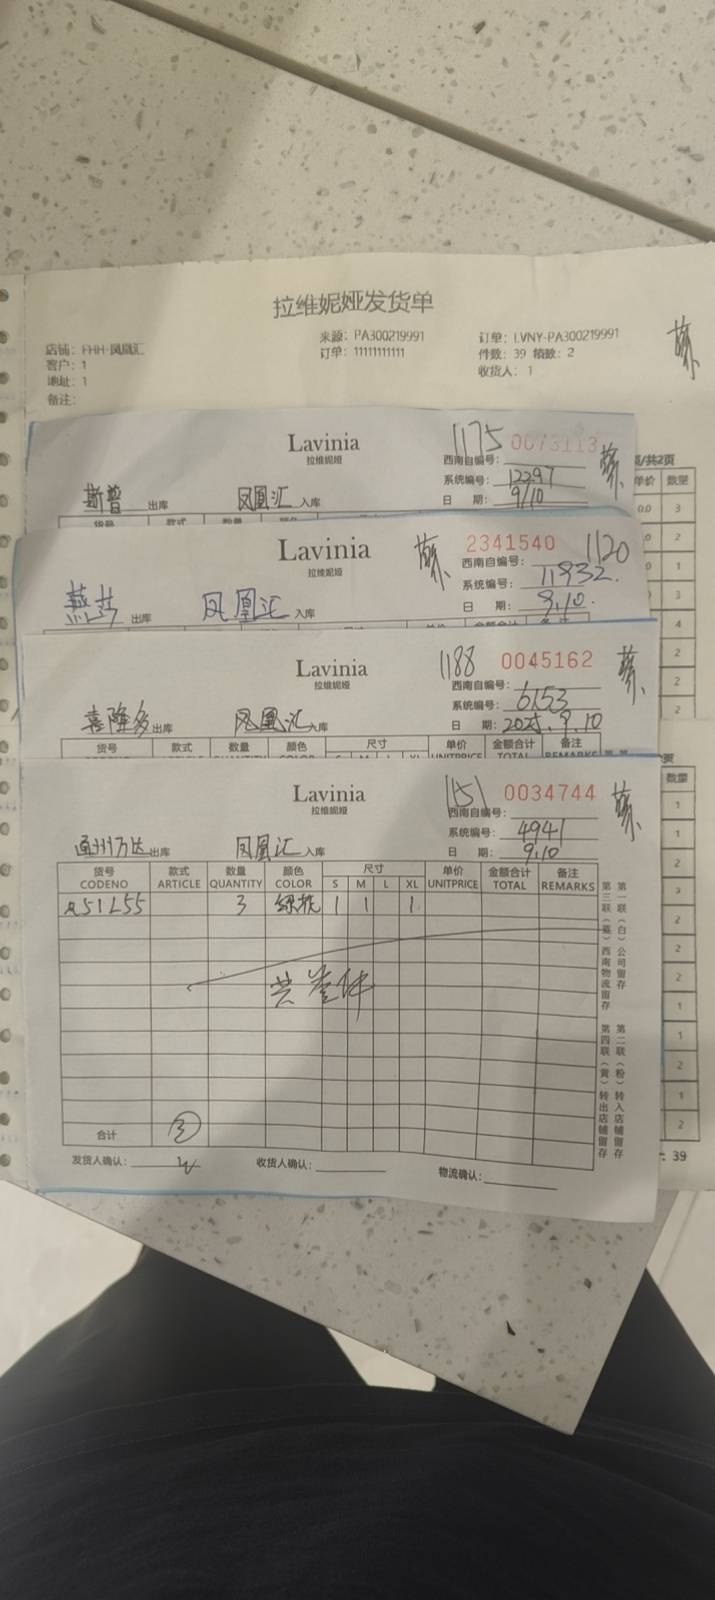 拉维妮娅发货单
店铺：FHH-凤凰汇
来源：PA300219991
订单：LVNY-PA300219991
客户：1
订单：11111111111
件数：39 箱数：2
地址：1
收货人：1
备注：
页/共2页
单价 数量
0.0 3
2
1
3
4
2
2
2
Lavinia
拉维妮娅
1175 0073113
西南自编号：
斯普 出库 凤凰汇 入库
系统编号：12297
日 期：9/10
货号 款式 数量 颜色
Lavinia
拉维妮娅
2341540 1120
西南自编号：
燕莎 出库 凤凰汇 入库
系统编号：11932.
日 期：9.10.
单价 金额合计 备注
Lavinia
拉维妮娅
1188 0045162
西南自编号：
喜隆多 出库 凤凰汇 入库
系统编号：6153
日 期：2025.9.10
货号 款式 数量 颜色 尺寸 单价 金额合计 备注
UNITPRICE TOTAL REMARKS
Lavinia
拉维妮娅
1151 0034744
西南自编号：
系统编号：4941
通州万达 出库 凤凰汇 入库
日 期：9.10
货号 款式 数量 颜色 尺寸 单价 金额合计 备注
CODENO ARTICLE QUANTITY COLOR S M L XL UNITPRICE TOTAL REMARKS
R51L55 3 1 1 1
共叁件
合计 3
发货人确认： 收货人确认： 物流确认：
第一联（白）公司留存
第二联（粉）转入店铺留存
第三联（蓝）西南物流留存
第四联（黄）转出店铺留存
数量
1
1
2
3
2
2
2
1
1
2
1
2
39